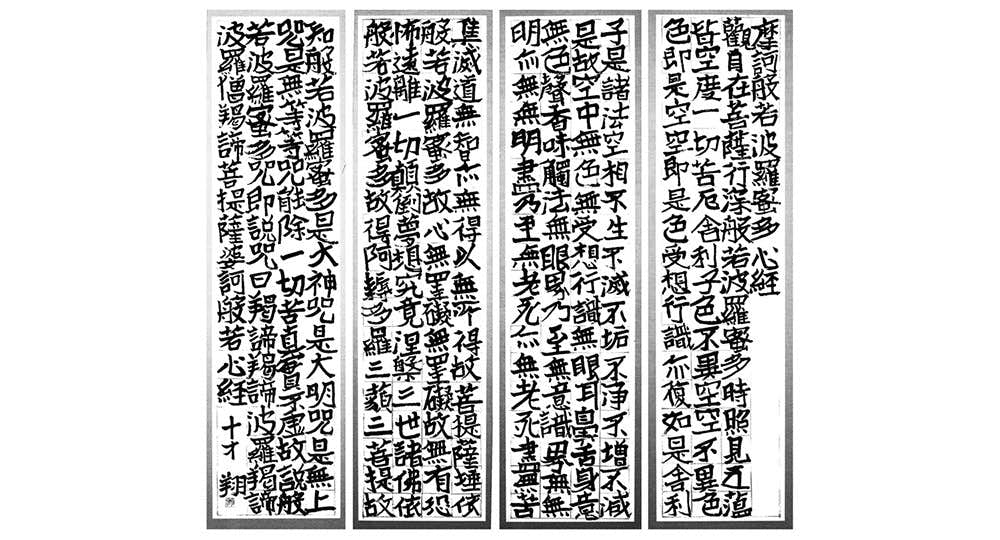 摩訶般若波羅蜜多心経
觀自在菩薩行深般若波羅蜜多時照見五蘊
皆空度一切苦厄舎利子色不異空空不異色
色即是空空即是色受想行識亦復如是舎利
子是諸法空相不生不滅不垢不浄不増不減
是故空中無色無受想行識無眼耳鼻舌身意
無色聲香味觸法無眼界乃至無意識界無無
明亦無無明盡乃至無老死亦無老死盡無苦
集滅道無智亦無得以無所得故菩提薩埵依
般若波羅蜜多故心無罣礙無罣礙故無有恐
怖遠離一切顛倒夢想究竟涅槃三世諸佛依
般若波羅蜜多故得阿耨多羅三藐三菩提故
知般若波羅蜜多是大神呪是大明呪是無上
呪是無等等呪能除一切苦真實不虚故説般
若波羅蜜多呪即説呪曰羯諦羯諦波羅羯諦
波羅僧羯諦菩提薩婆訶般若心経 十才 翔